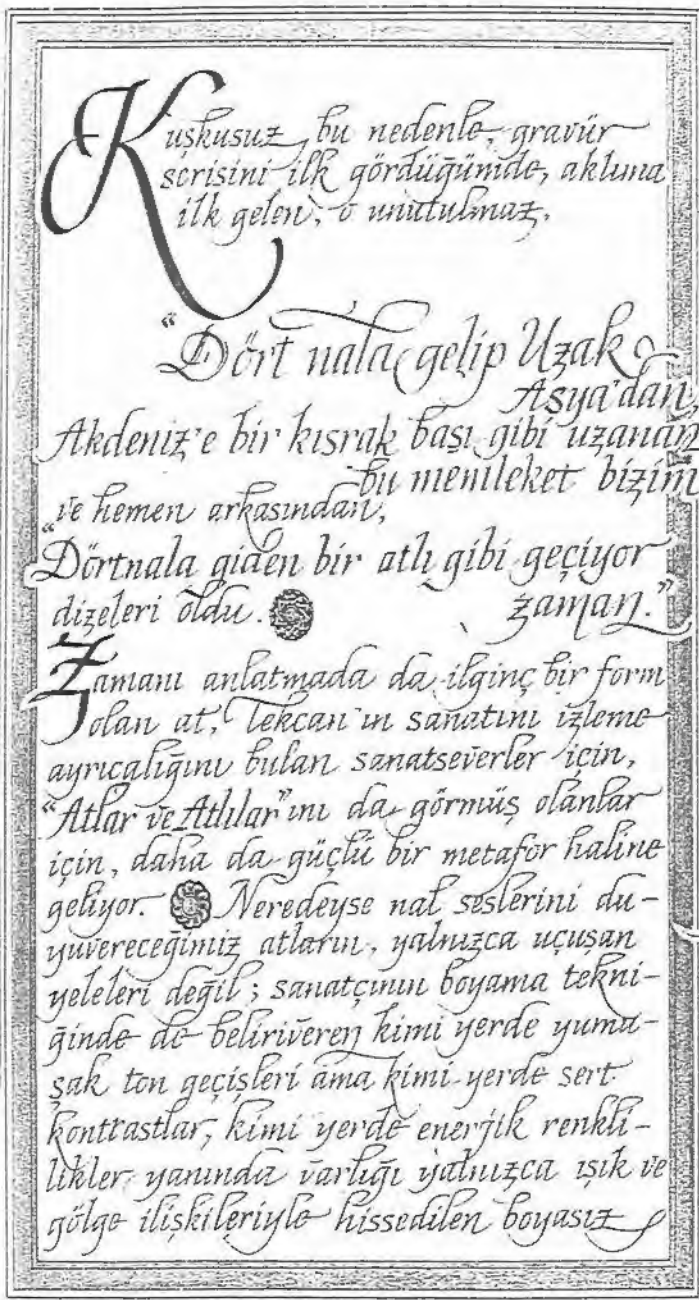 Kuşkusuz, bu nedenle, gravür
serisini ilk gördüğümde, aklıma
ilk gelen, o unutulmaz,
"Dört nala gelip Uzak
Asya'dan,
Akdeniz'e bir kısrak başı gibi uzanan
bu memleket bizim
ve hemen arkasından,
"Dörtnala giden bir atlı gibi geçiyor
zaman."
dizeleri oldu.
Zamanı anlatmada da ilginç bir form
olan at, Tekcan'ın sanatını izleme
ayrıcalığını bulan sanatseverler için,
"Atlar ve Atlılar"ını da görmüş olanlar
için, daha da güçlü bir metafor haline
geliyor. Neredeyse nal seslerini du-
yuvereceğimiz atların, yalnızca uçuşan
yeleleri değil; sanatçının boyama tekni-
ğinde de beliriveren kimi yerde yuma-
şak ton geçişleri ama kimi yerde sert
konttastlar, kimi yerde enerjik renkli-
likler yanında varlığı yalnızca ışık ve
gölge ilişkileriyle hissedilen boyasız